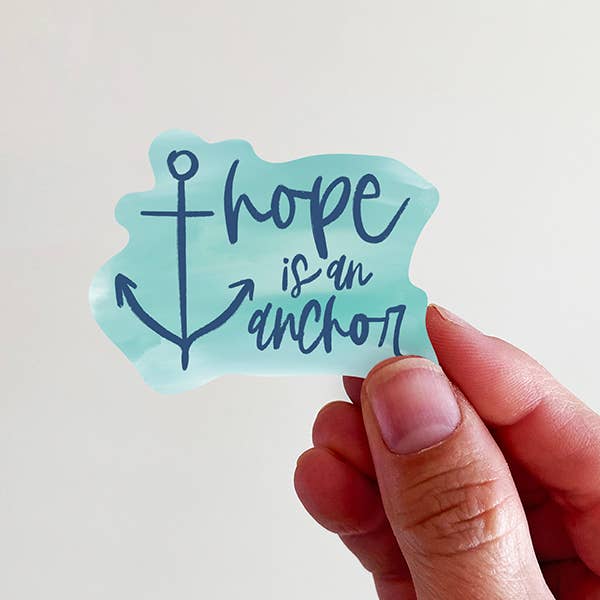 hope
is an
anchor